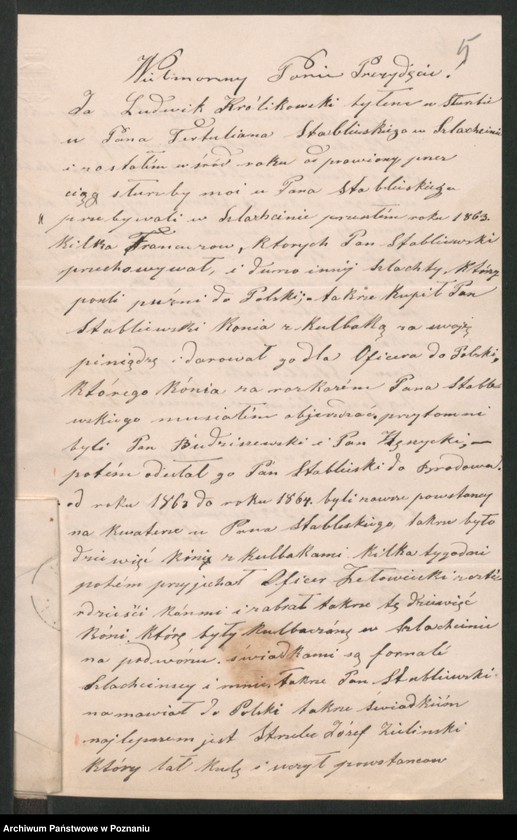 5
Wielmorzny Panie Prezydęcie!
Ja Ludwik Królikowski byłem w słurzbie
u Pana Tertuliana Stablewskiego w Szlachcinie
i zostałem wśród roku odprawiony przez
ciąg słurzby moi u Pana Stablewskiego
przebywali w Szlachcinie roku 1863.
kilka Francuzow, ktorych Pan Stablewski
przechowywał, i durzo innéj szlachty, którzy
poszli puźni do Polski, takrze kupił Pan
Stablewski konia z kulbaką za swoje
piniądze i darował go dla Oficera do Polski,
którego kónia za rozkazem Pana Stable
wskiego musiałem objezdzać, przytomni
byli Pan Budziszewski i Pan
potém odesłał go Pan Stablewski do Brodowa.
od roku 1863 do roku 1864. byli powstancy
na kwaterze u Pana Stablewskiego, takrze było
dziewięć kóni z kulbakami kilka tygodni
potém przyjechał Oficer
kónmi i zabrał takrze tę dziewięć
koni. którę były kulbaczóne w Szlachcinie
na podwórzu. świadkami są fornale
Szlachcinscy i mnie takrze Pan Stablewski
namawiał do Polski takrze świadkiém
najlepszem jest Strzelec Józef Zielinski
który lał kule i uczył powstancow
Archiwum Państwowe w Poznaniu